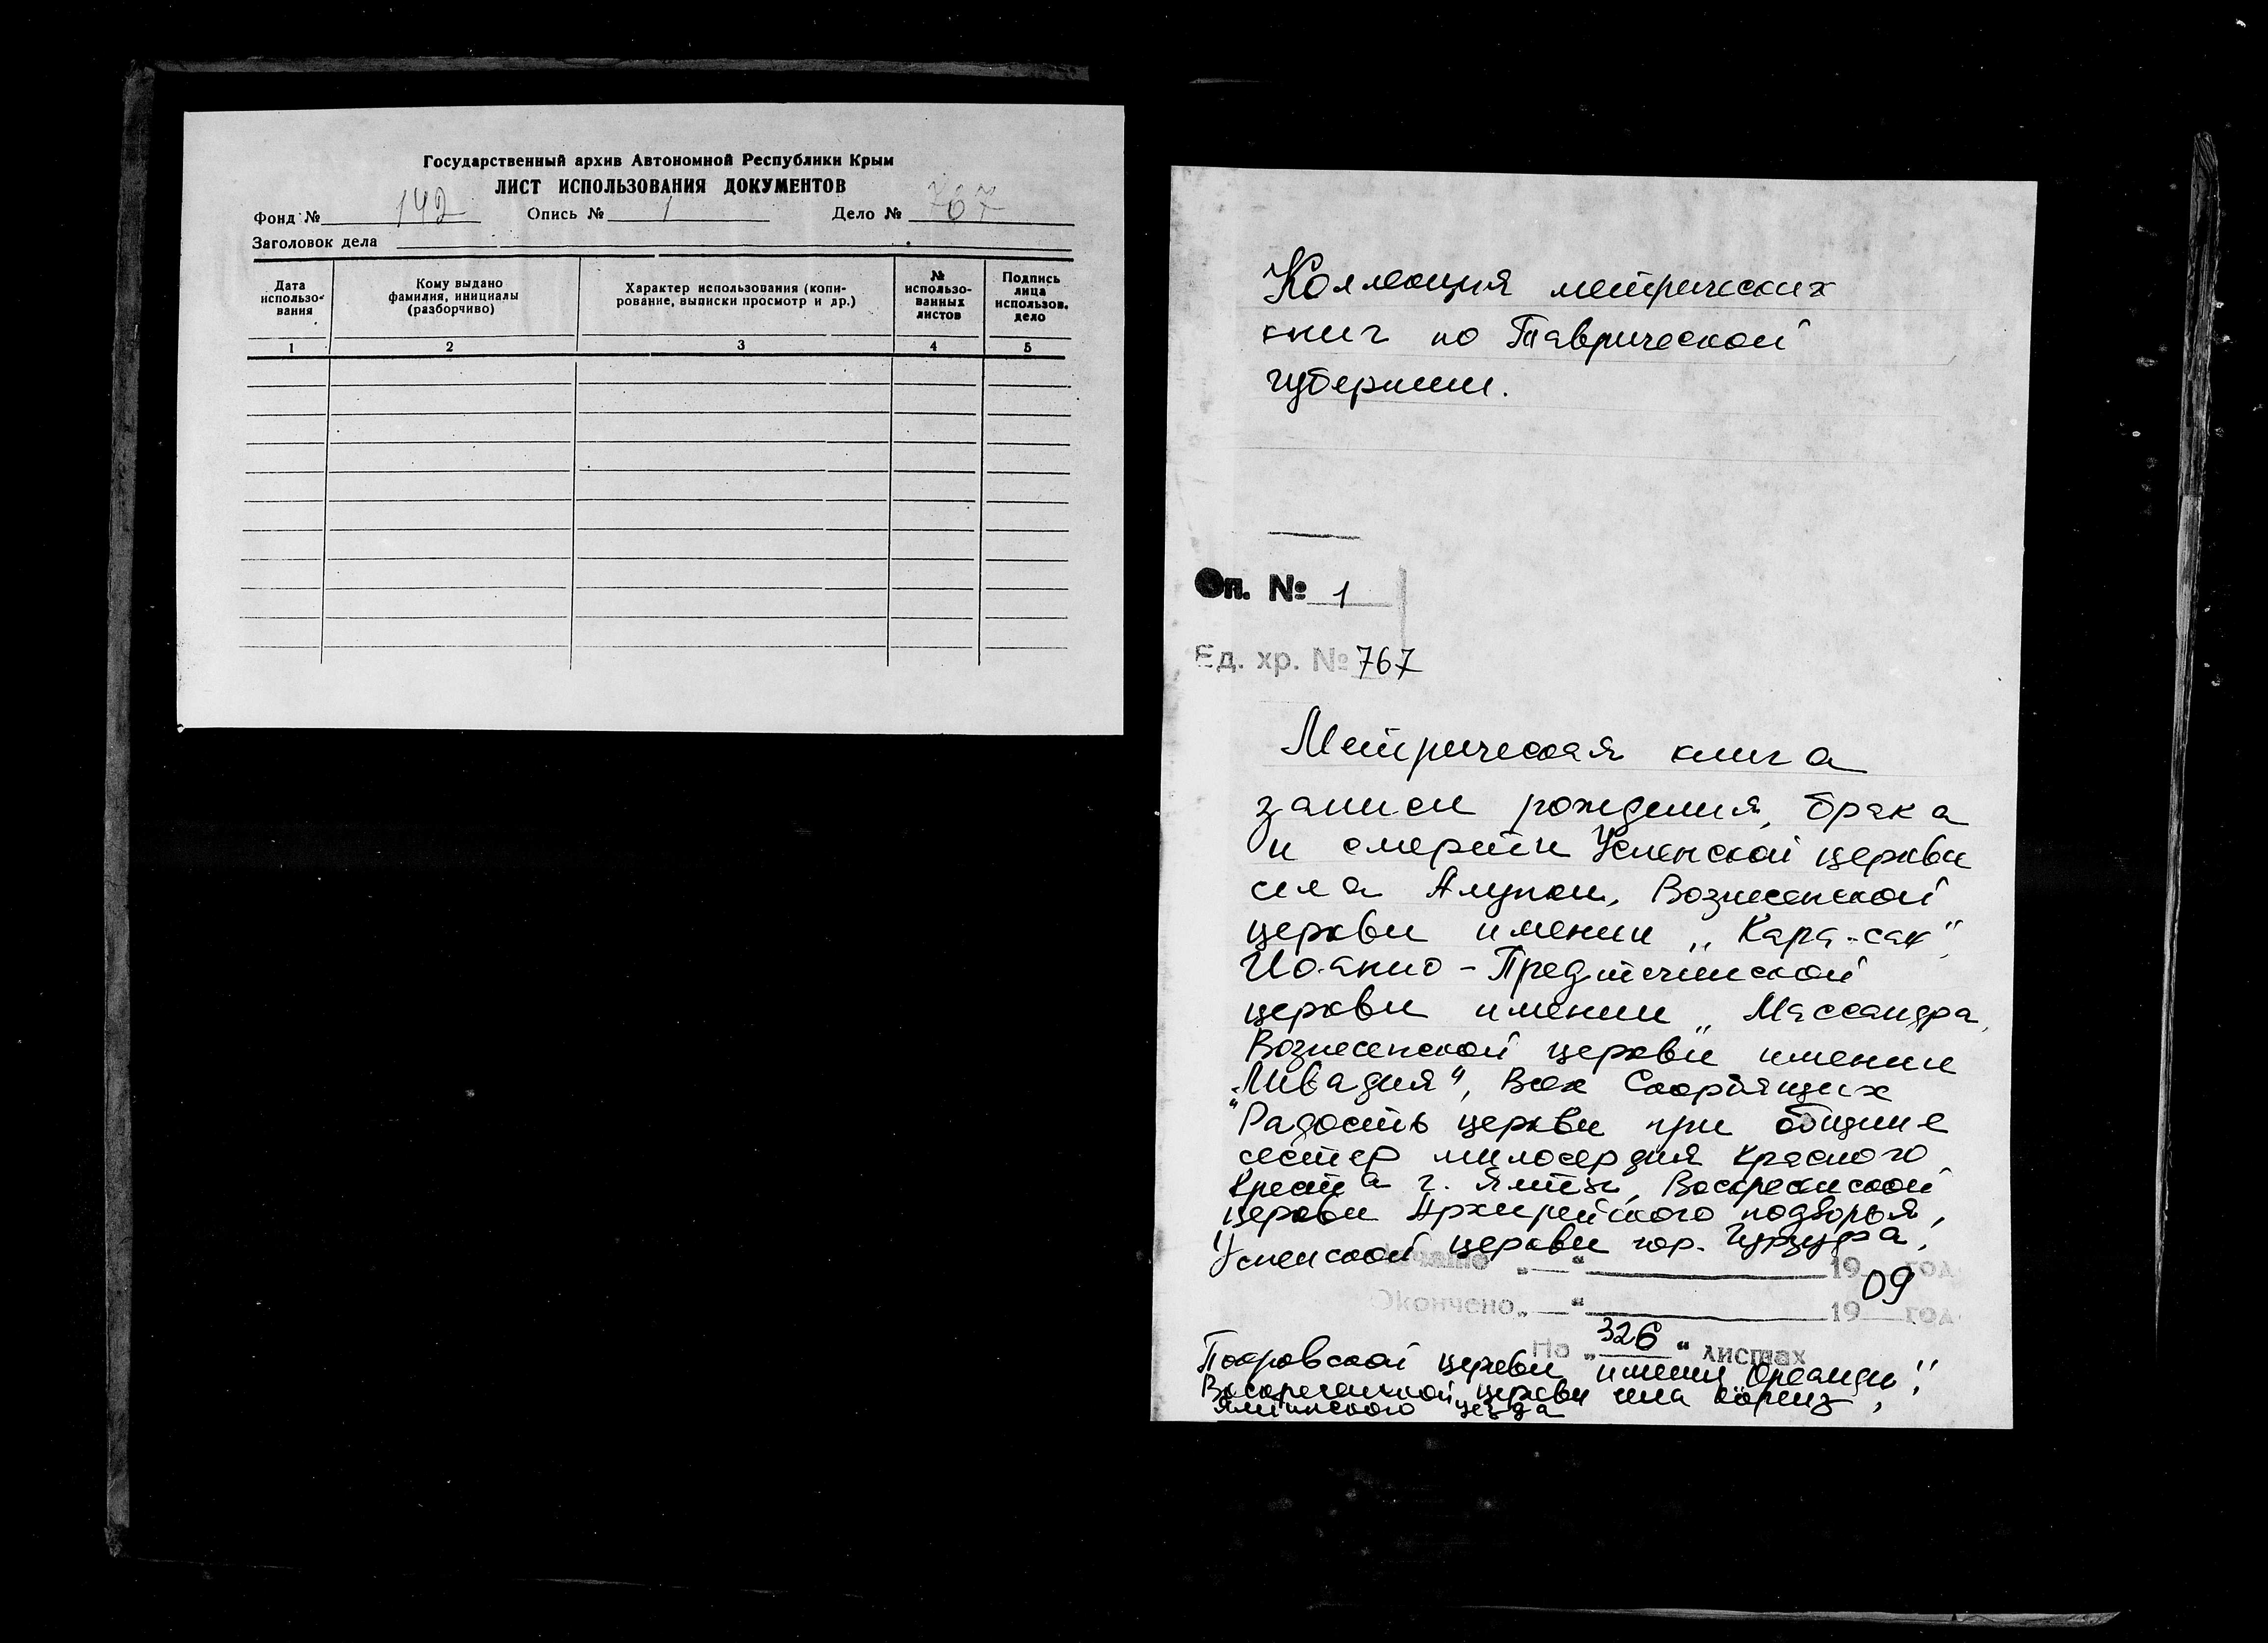 Государственный архив Автономной Республики Крым
ЛИСТ ИСПОЛЬЗОВАНИЯ ДОКУМЕНТОВ
Фонд № 142 Опись № 1 Дело № 767
Заголовок дела
Дата использования
Кому выдано фамилия, инициалы (разборчиво)
Характер использования (копирование, выписки просмотр и др.)
№ использованных листов
Подпись лица использов. дело
1 2 3 4 5
Коллекция метрических
книг по Таврической
губернии.
Оп. № 1
Ед. хр. № 767
Метрическая книга
записи рождения, брака
и смерти Успенской церкви
села Алупки, Вознесенской
церкви имении „Кара-сан",
Иоанно-Предтеченской
церкви имении „Массандра,
Вознесенской церкви имении
„Ливадия", Всех Скорбящих
"Радость церкви при общине
сестер милосердия Красного
Креста г. Ялты, Воскресенской
церкви Архирейского подворья,
Успенской церкви гор. Гурзуфа,
Начато „—" 19 год
09
Окончено „—" 19 год
На „326" листах
Покровской церкви имении Ореанды",
Воскресенской церкви села Кореиз,
Ялтинского уезда